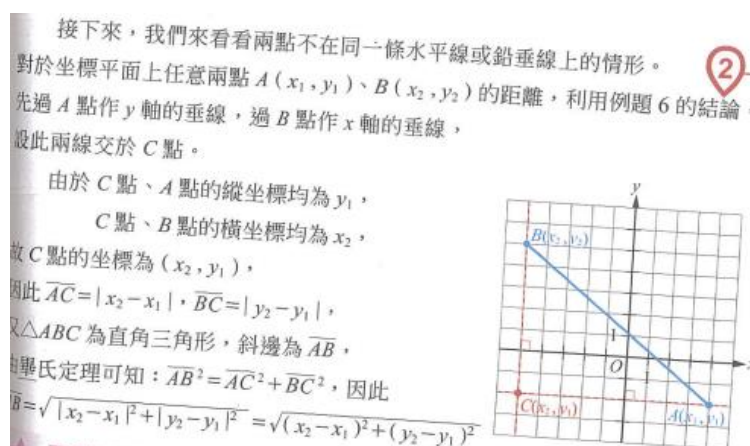 接下來，我們來看看兩點不在同一條水平線或鉛垂線上的情形。
②
對於坐標平面上任意兩點 A ( x₁ , y₁ )、B ( x₂ , y₂ ) 的距離，利用例題 6 的結論
先過 A 點作 y 軸的垂線，過 B 點作 x 軸的垂線，
設此兩線交於 C 點。
由於 C 點、A 點的縱坐標均為 y₁，
C 點、B 點的橫坐標均為 x₂，
故 C 點的坐標為 ( x₂ , y₁ )，
因此 A̅C̅=| x₂−x₁ |，B̅C̅=| y₂−y₁ |，
又△ABC 為直角三角形，斜邊為 A̅B̅，
由畢氏定理可知：A̅B̅²=A̅C̅²+B̅C̅²，因此
B̅=√| x₂−x₁ |²+| y₂−y₁ |² =√( x₂−x₁ )²+( y₂−y₁ )²
y
B(x₂, y₂)
1
O
1
C(x₂, y₁)
A(x₁, y₁)